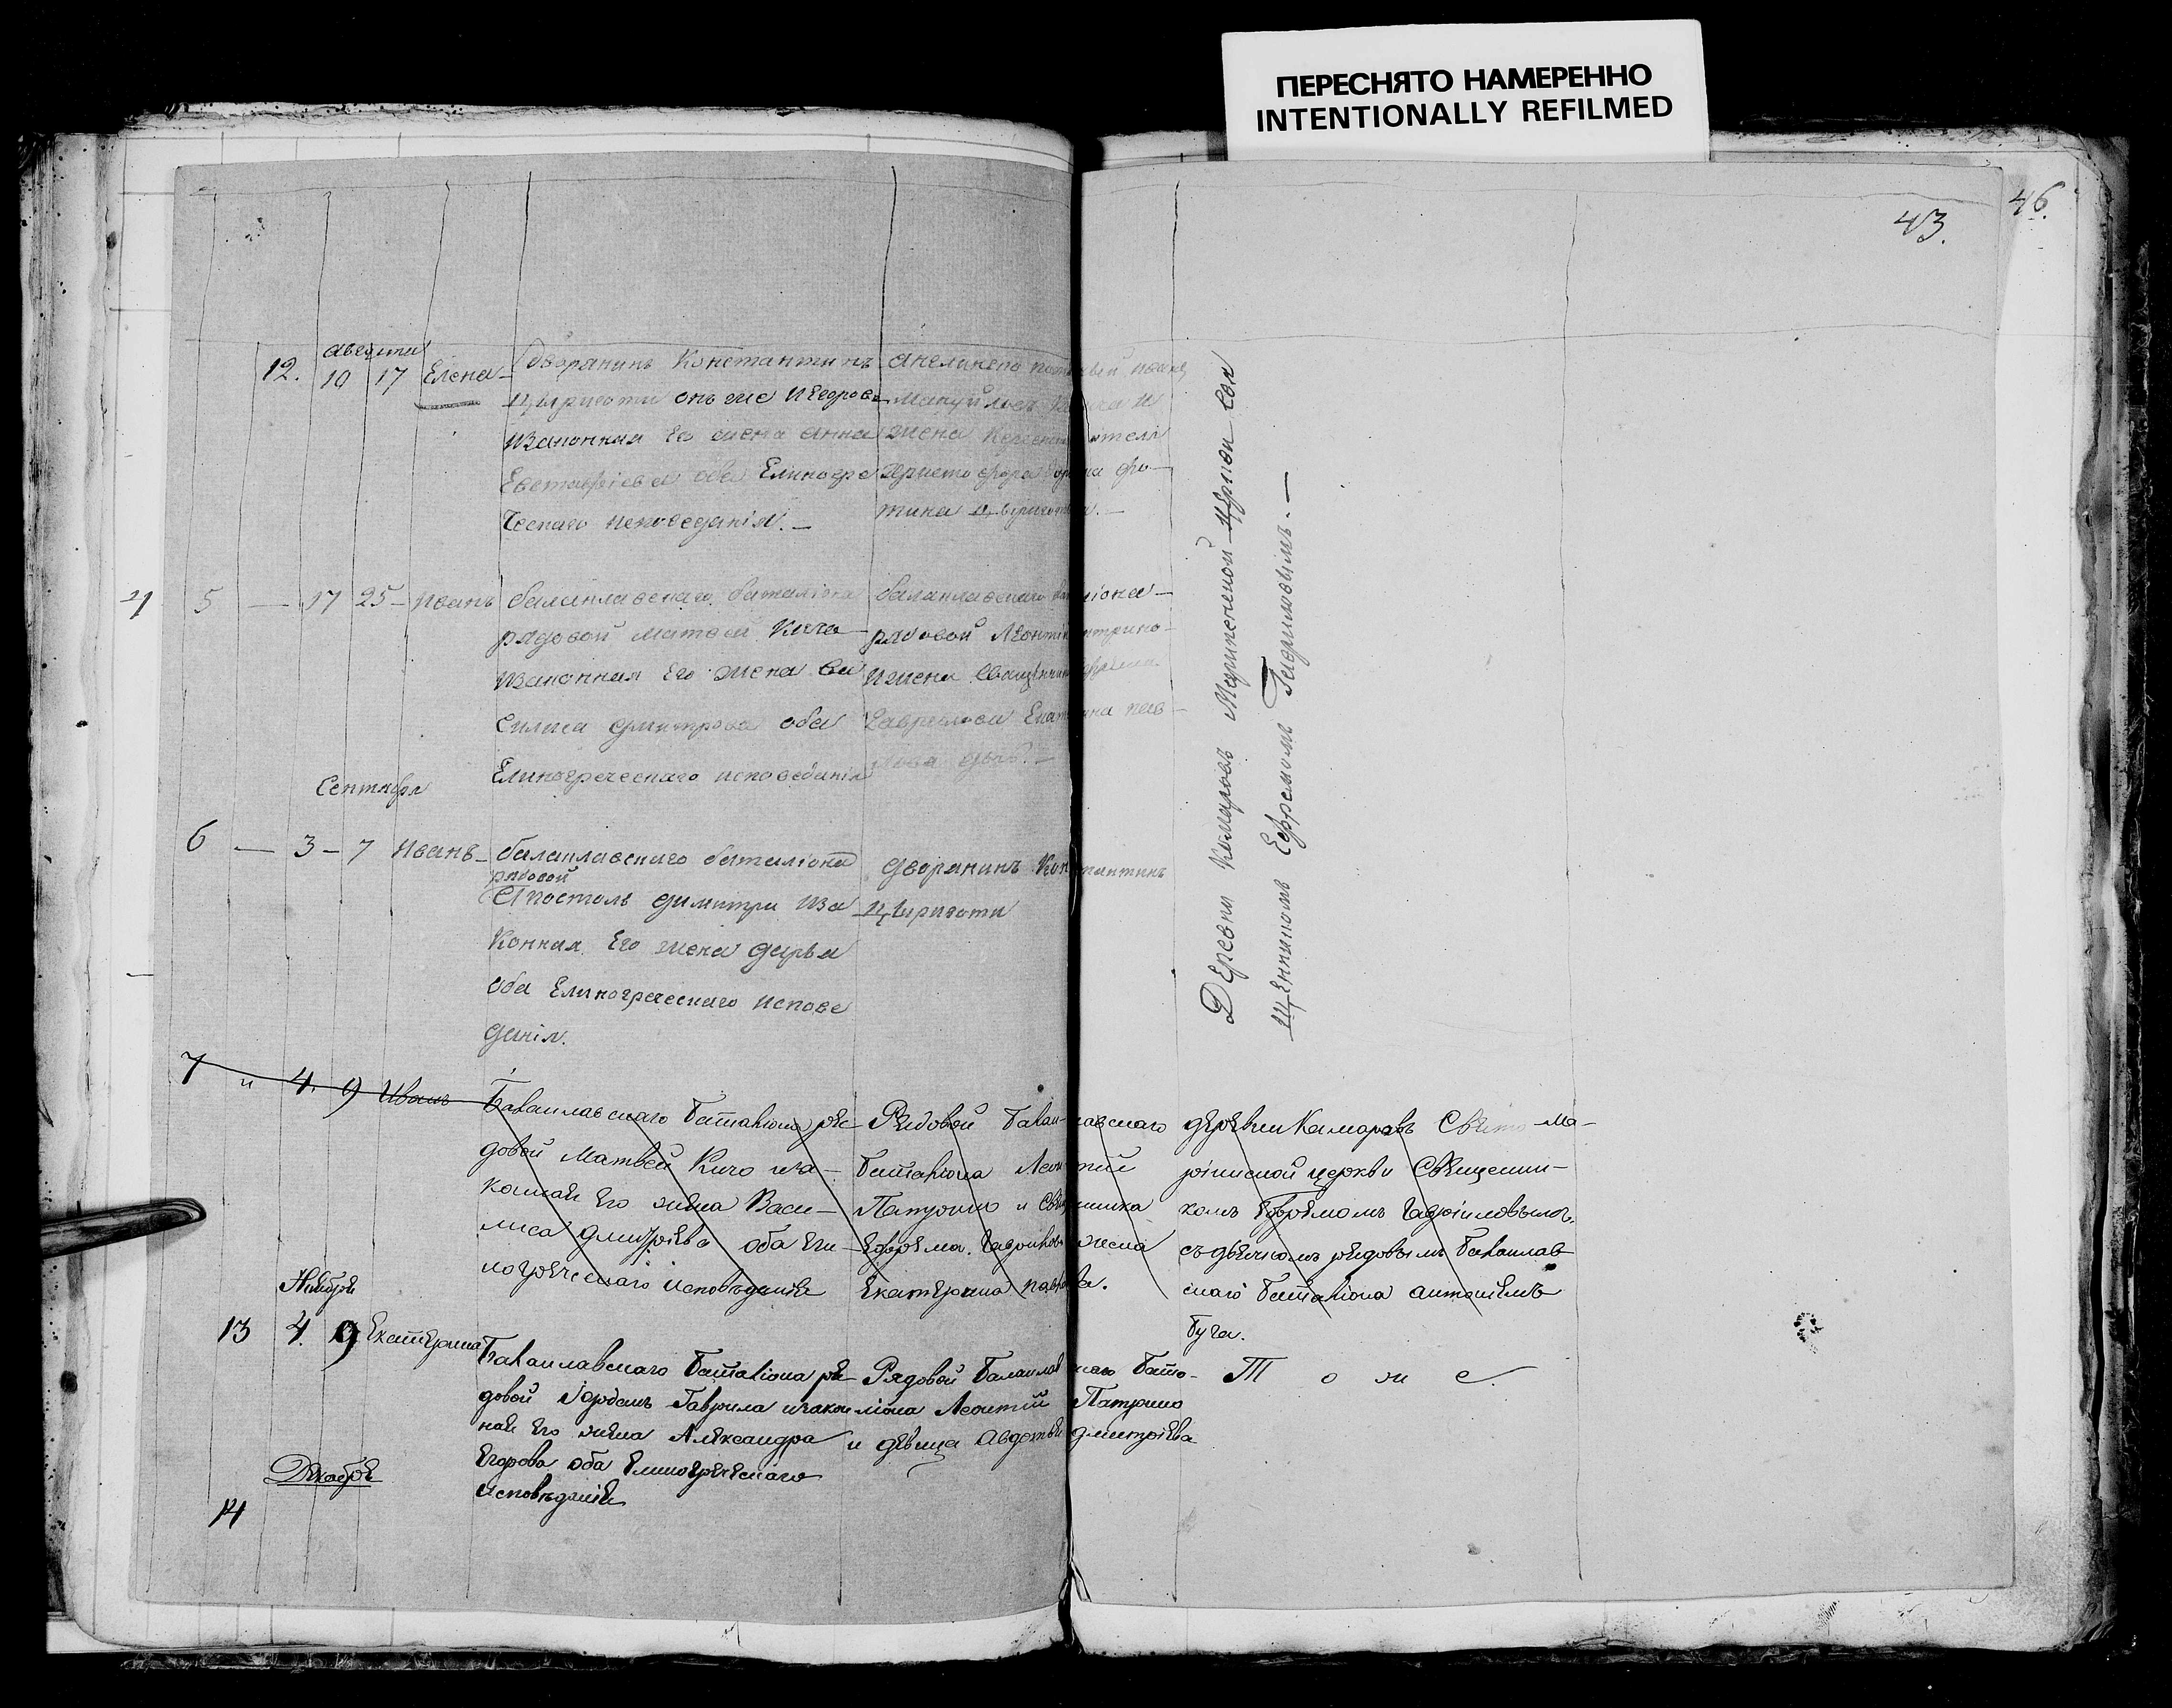 ПЕРЕСНЯТО НАМЕРЕННО
INTENTIONALLY REFILMED
46.
43.
августа
12. 10 17 Елена
дворянинъ Константинъ
Цыриготи онъ же
изаконная его жена анна
Евстафіева оба Елиногре
ческаго исповеданія. —
мануйловъ
жена
христофора
тина Цыриготи. —
5 — 17 25 — Иванъ
балаклавскаго баталіона
рядовой матвей Кича
изаконная Его жена ва
силиса дмитрова оба
Елиногреческаго исповеданія
балаклавскаго баталіона —
рядовой Леонтій Патрино —
ижена Священника Ефрема
Гаврилова Екатерина пав —
лова
Сентября
6 — 3 — 7 Иванъ —
балаклавскаго баталіона
рядовой
Апостоль димитри иза
конная Его жена дарья
оба Елиногреческаго испове
данія.
дворянинъ Константинъ
Цыриготи
Деревни Комаровъ Маринской Церкви Свя
щенникомъ Ефремомъ Гавриловымъ. —
7 " 4. 9 Иванъ
Балаклавскаго Баталіона ря-
довой Матвей Кичо иза-
конная Его жена Васи-
лиса дмитріева оба Эли-
ногреческаго исповѣданія
Рядовой Балаклавскаго
Баталіона Леонтій
Патрино и Священника
Ефрема Гаврилова жена
Екатерина павлова.
деревни Камаровъ Свято Ма-
ріинской церкви Священни-
комъ Ефремомъ Гавріиловымъ.
съ дьячкомъ рядовымъ Балаклав
скаго Баталіона антоніемъ
буча.
Ноября
13 4. 9 Екатерина
Балаклавскаго Баталіона ря-
довой Іорданъ Гаврила изакон
ная Его жена Александра
Егорова оба Елиногреческаго
исповѣданія
Рядовой Балаклавскаго Бата-
ліона Леонтій Патрино
и девица Авдотья дмитріева
Т о ж е.
Декабря
14